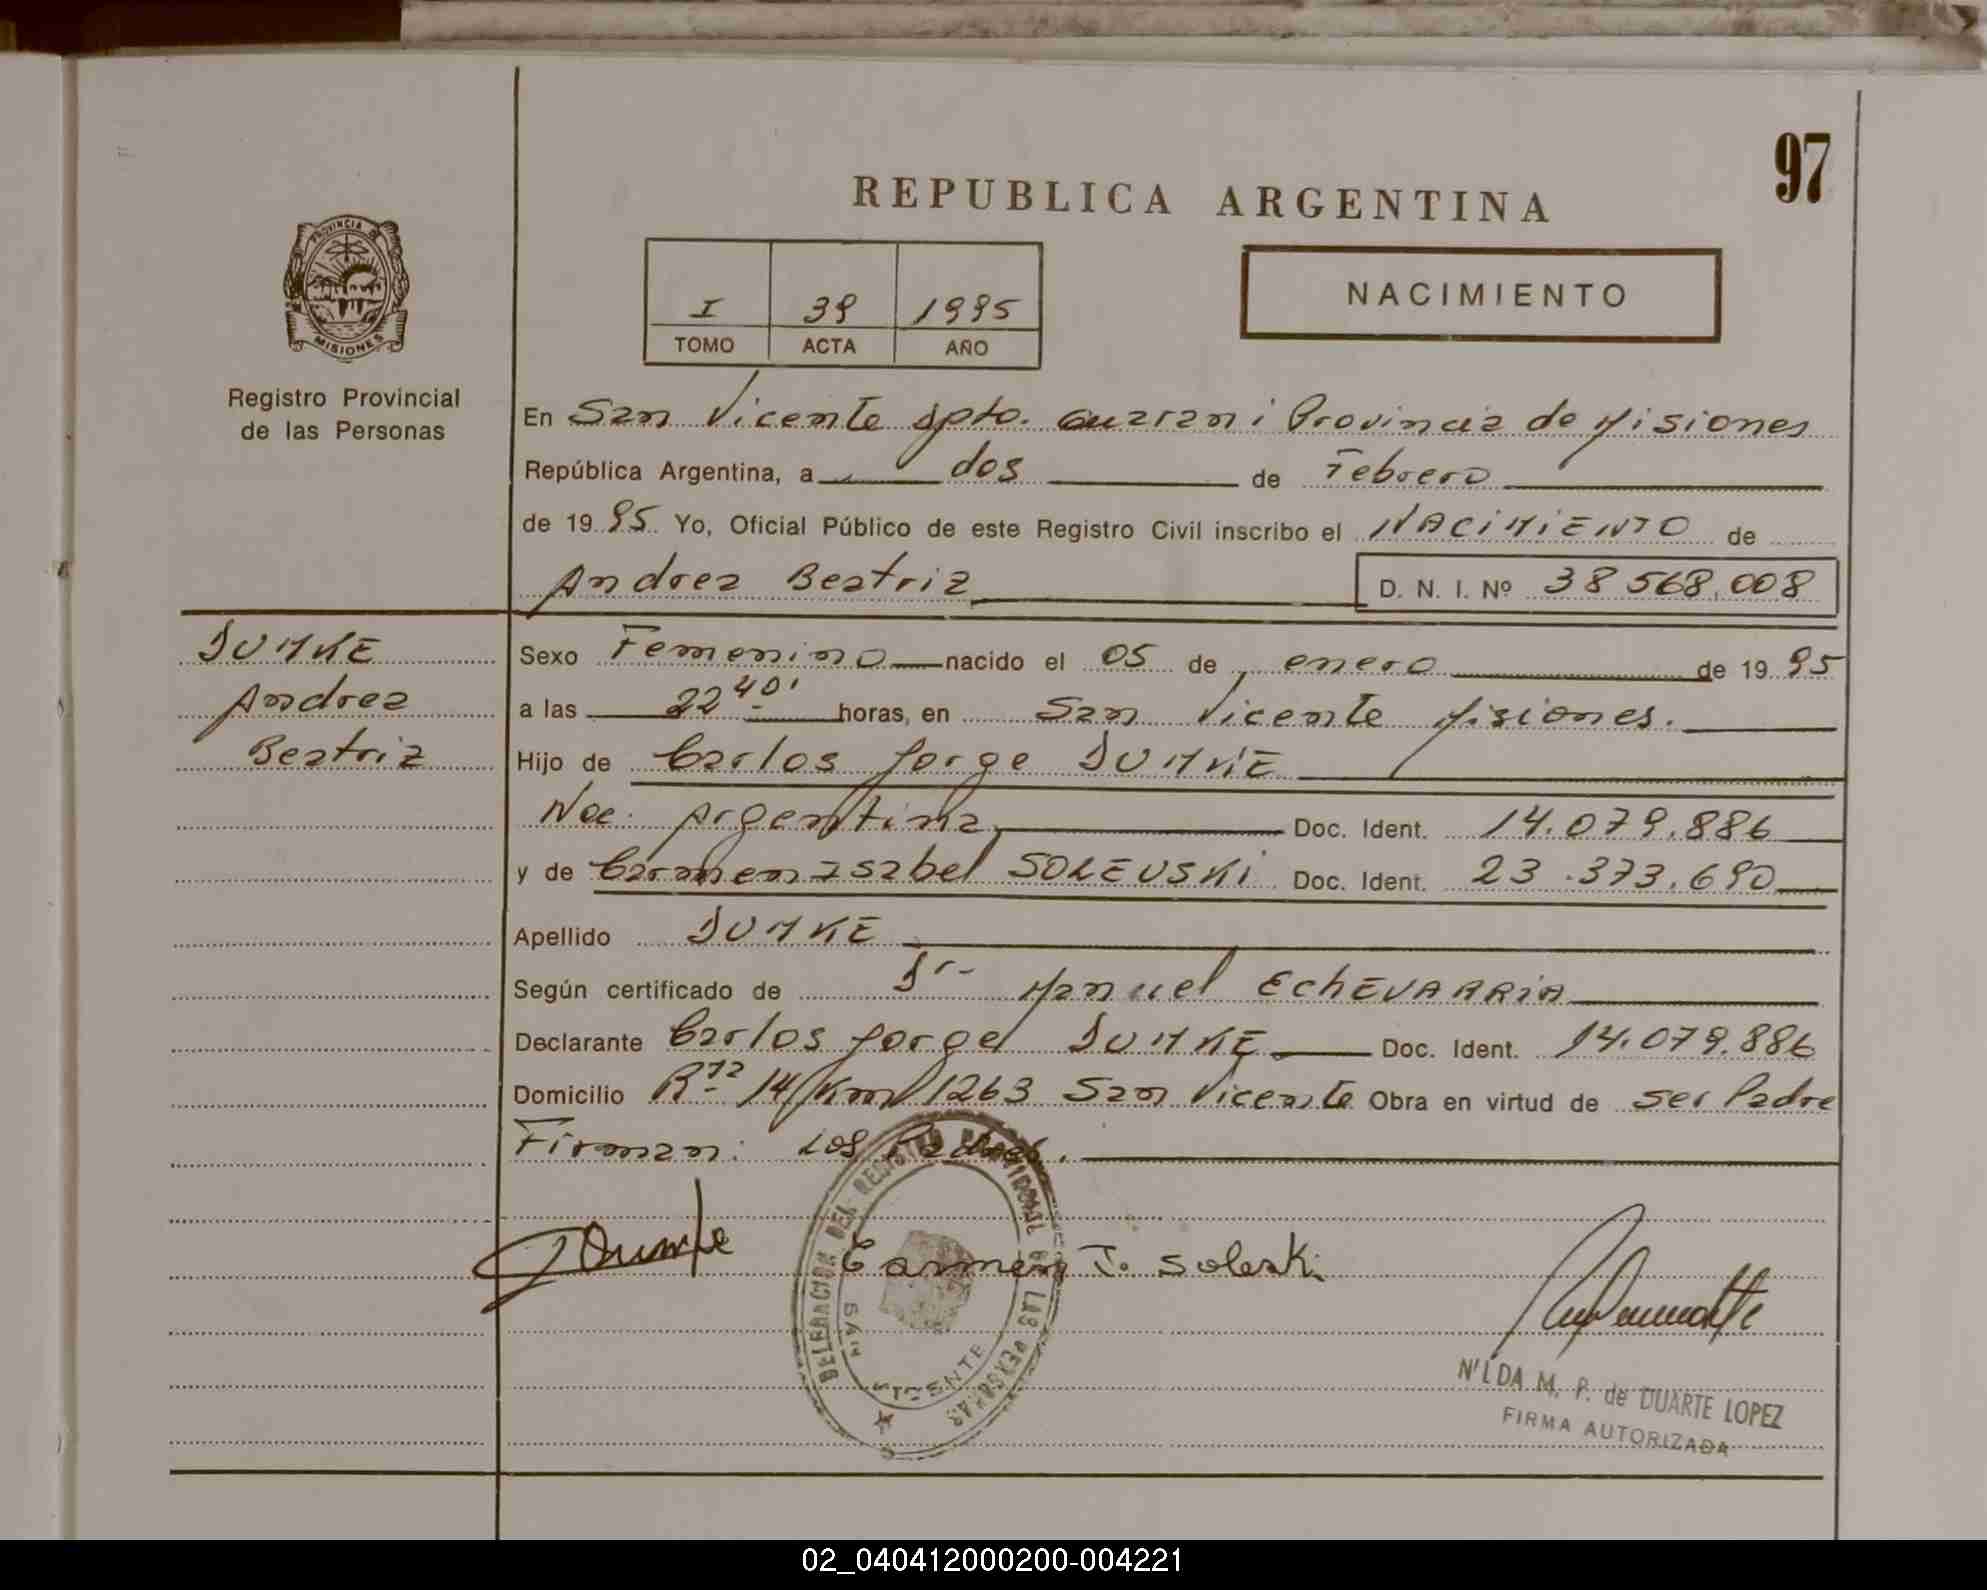 97
REPUBLICA ARGENTINA
PROVINCIA DE
MISIONES
Registro Provincial
de las Personas
I 39 1995
TOMO ACTA AÑO
NACIMIENTO
En San Vicente Dpto. Guarani Provincia de Misiones
República Argentina, a dos de Febrero
de 1995 Yo, Oficial Público de este Registro Civil inscribo el NACIMIENTO de
Andrea Beatriz D. N. I. Nº 38 568.008
DUMKE
Andrea
Beatriz
Sexo Femenino nacido el 05 de enero de 1995
a las 22 40' horas, en San Vicente Misiones.
Hijo de Carlos Jorge DUMKE
Nac. Argentina Doc. Ident. 14.079.886
y de Carmen Isabel SOLEVSKI Doc. Ident. 23.373.690
Apellido DUMKE
Según certificado de Dr- Manuel EChEVARRIA
Declarante Carlos Jorge DUMKE Doc. Ident. 14.079.886
Domicilio Rta 14 Km 1263 San Vicente Obra en virtud de ser Padre
Firman: Los Padres.
Dumke
Carmen I. Soleski
DELEGACION DEL REGISTRO PROVINCIAL DE LAS PERSONAS
SAN VICENTE
NILDA M. P. de DUARTE LOPEZ
FIRMA AUTORIZADA
02_040412000200-004221